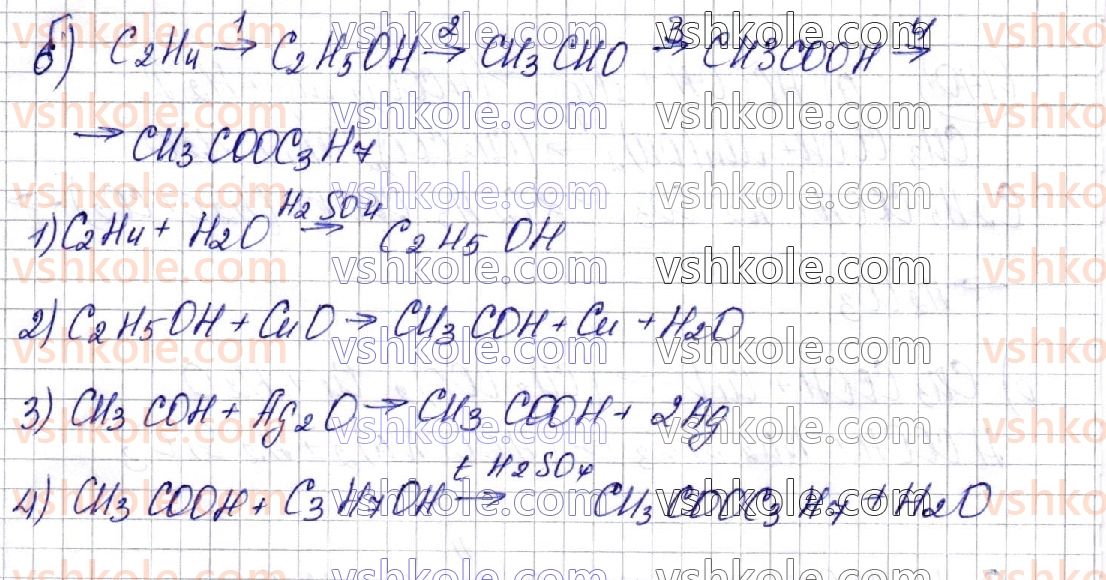 б) C2H4 1→ C2H5OH 2→ CH3CHO 3→ CH3COOH 4→
→ CH3COOC3H7
1) C2H4 + H2O H2SO4→ C2H5OH
2) C2H5OH + CuO → CH3COH + Cu + H2O
3) CH3COH + Ag2O → CH3COOH + 2Ag
4) CH3COOH + C3H7OH t H2SO4→ CH3COOC3H7 + H2O
vshkole.com